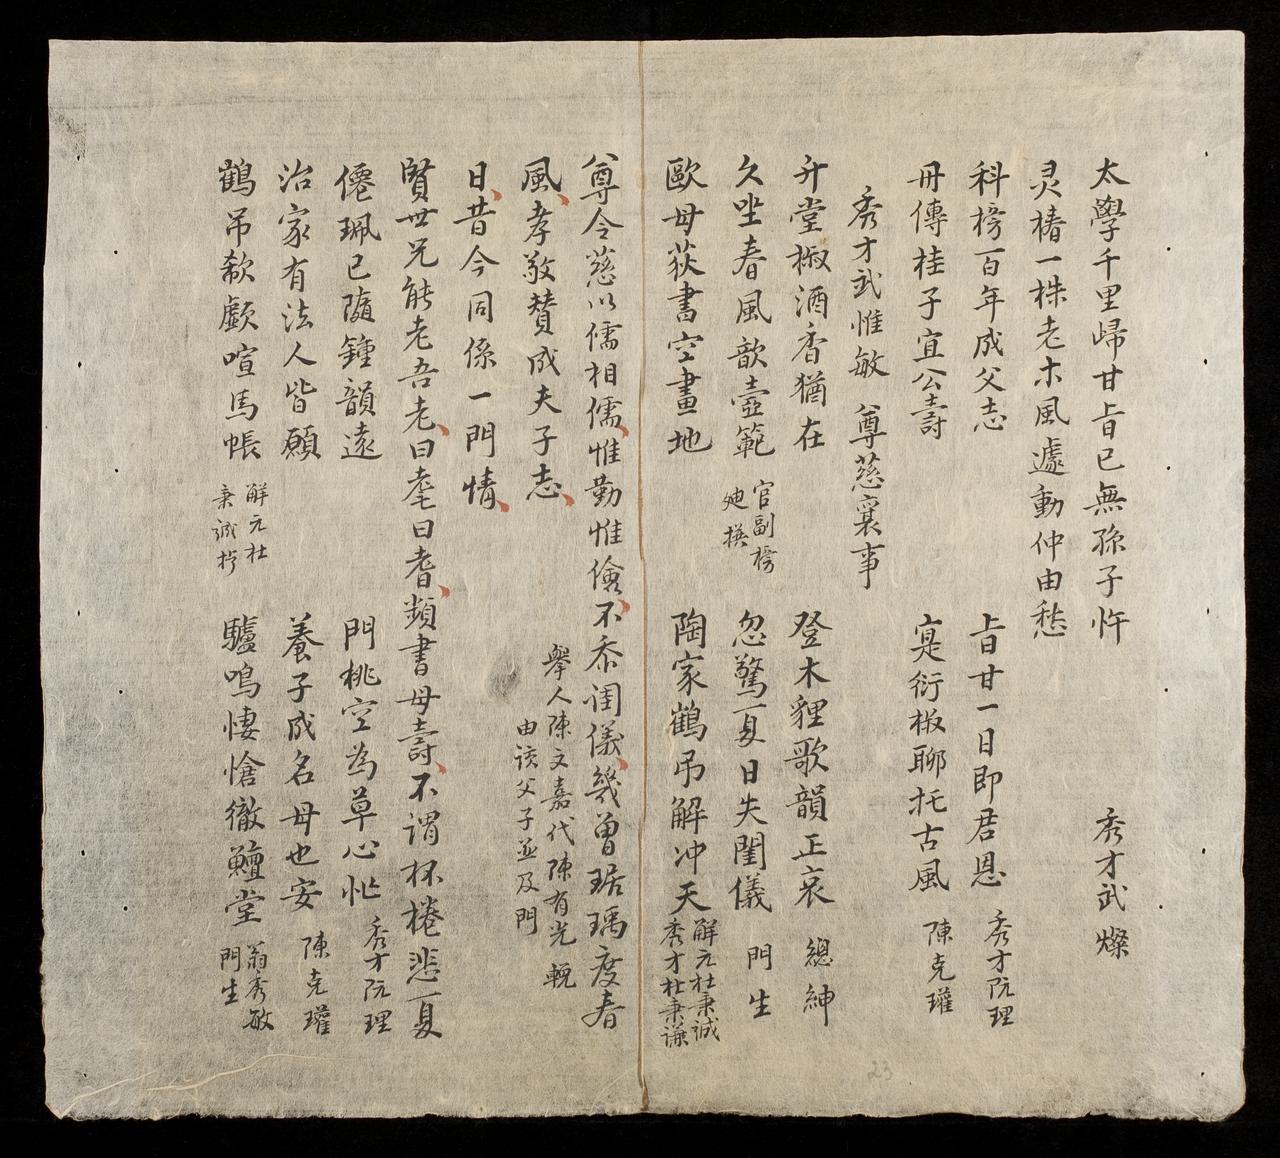 太學千里歸甘旨已無孫子忤 秀才武燦
灵椿一株老木風遽動仲由愁
科榜百年成父志 旨甘一日即君恩 秀才阮理
冊傳桂子宜公壽 寔衍椒聊托古風 陳克瓘
秀才武惟敏 尊慈襄事
升堂椒酒香猶在 登木貍歌韻正哀 總紳
久坐春風歆壼範 忽驚夏日失閨儀 門生
官副榜
廸撰
歐母荻書空畫地 陶家鶴吊解冲天
解元杜秉誠
秀才杜秉謙
尊令慈以儒相儒惟勤惟儉不忝閨儀幾曾琚瑀度春
風孝敬贊成夫子志
舉人陳文嘉代陳有光輓
由该父子並及門
日昔今同係一門情
賢世兄能老吾老曰耄曰耆頻書母壽不謂杯棬悲夏
僊珮已隨鍾韻遠 門桃空為草心忙 秀才阮理
治家有法人皆願 養子成名母也安 陳克瓘
鶴吊欷歔喧馬帳 驢鳴悽愴徹鱣堂
解元杜
秉誠
翁秀敏
門生
23